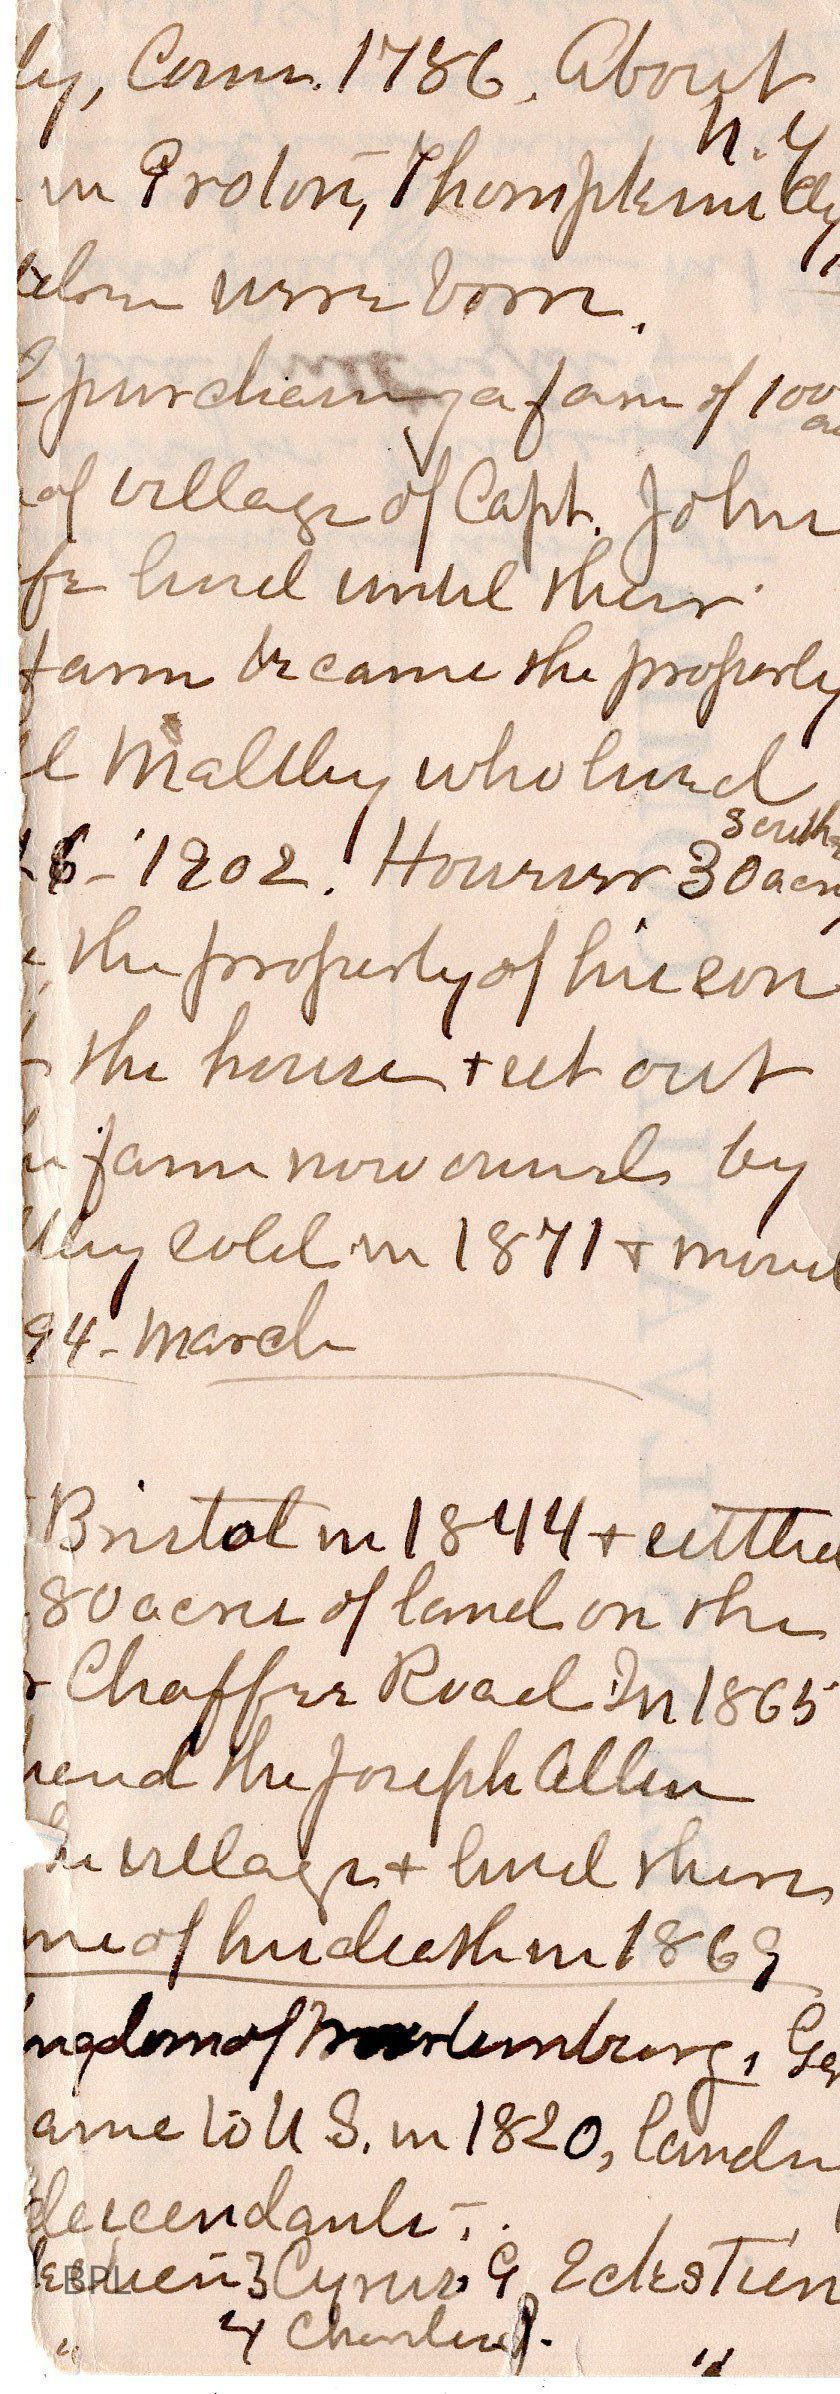 ly, Conn. 1786. About
N.Y
in Groton, Thompkins Cty,
were born.
purchasing a farm of 100
of village of Capt. John
fe lived until their
farm became the property
l Maltby who lived
south
6-1902. However 30 acres
the property of his son
the house + set out
farm now owned by
sold in 1871 + moved
94 - March
Bristol in 1844 + settled
80 acres of land on the
Chaffee Road In 1865
the Joseph Allen
he village + lived there
me of his death in 1869
ngdom of Wurtemburg, Ger
ame to U S. in 1820, landin
descendants -
BPL
3 Cyrus G Eckestien
" 4 Charles P. "